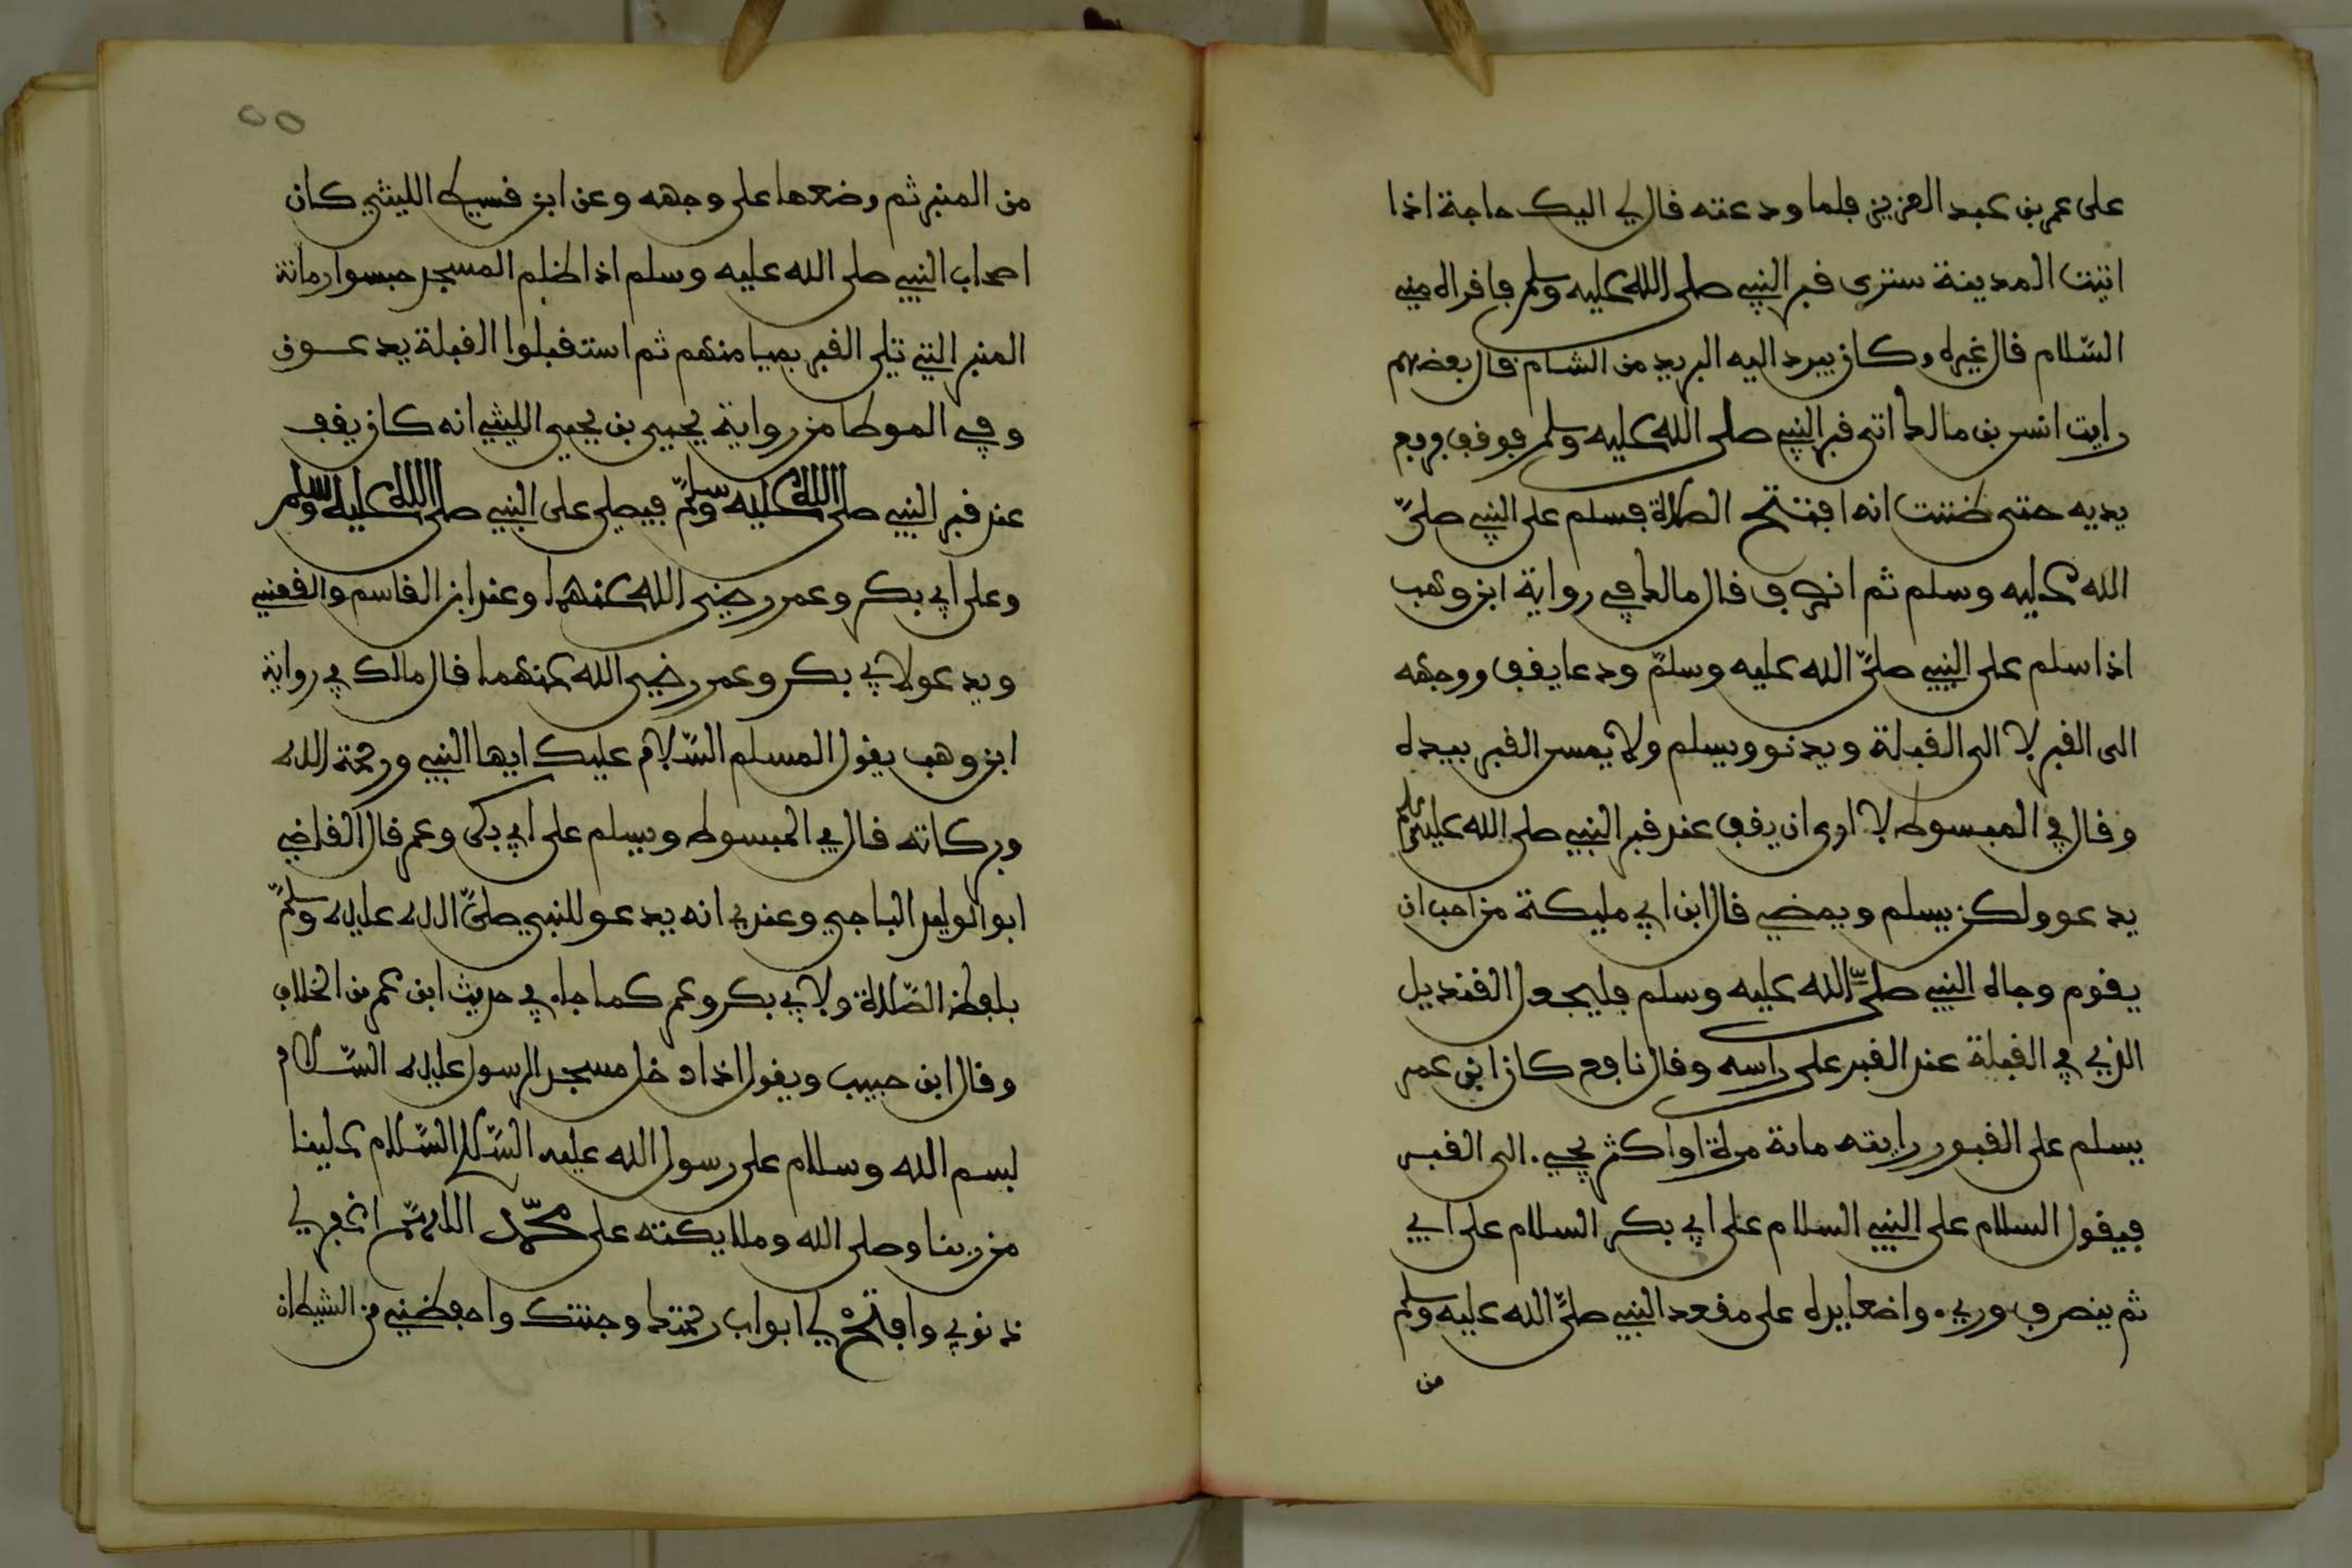 على عمر بن عبد العزيز فلما ودعته قال لي اليك حاجة اذا
اتيت المدينة سترى قبر النبي صلى الله عليه وسلم فاقراه مني
السّلام قال غيره وكان يبرد اليه البريد من الشام قال بعضهم
رايت انس بن مالك اتى قبر النبي صلى الله عليه وسلم فوقف فرفع
يديه حتى ظننت انه افتتح الصلاة فسلم على النبي صلىّ
الله عليه وسلم ثم انصرف قال مالك في رواية ابن وهب
اذا سلم على النبي صلىّ الله عليه وسلمّ ودعا يقف ووجهه
الى القبر لا الى القبلة ويدنو ويسلم ولا يمس القبر بيده
وقال في المبسوط لا ارى ان يقف عند قبر النبي صلى الله عليه وسلم
يدعو ولكن يسلم ويمضي قال ابن ابي مليكة من احب ان
يقوم وجاه النبي صلىّ الله عليه وسلم فليجعل القنديل
الذي في القبلة عند القبر على راسه وقال نافع كان ابن عمر
يسلم على القبور رايته مائة مرة او اكثر يجيء الى القبر
فيقول السلام على النبي السلام على ابي بكر السلام على ابي
ثم ينصرف وريء واضعا يده على مقعد النبي صلىّ الله عليه وسلم
من
٥٥
من المنبر ثم وضعها على وجهه وعن ابن قسيط الليثي كان
اصحاب النبي صلى الله عليه وسلم اذا خلم المسجد حبسوا رمانة
المنبر التي تلي القبر بميامنهم ثم استقبلوا القبلة يدعون
وفي الموطا من رواية يحيى بن يحيى الليثي انه كان يقف
عند قبر النبي صلى الله عليه وسلمّ فيصلي على النبي صلى الله عليه وسلم
وعلى ابي بكر وعمر رضي الله عنهما وعند ابن القاسم والقعنبي
ويدعو لابي بكر وعمر رضي الله عنهما قال مالك في رواية
ابن وهب يقول المسلم السّلام عليك ايها النبي ورحمة الله
وبركاته قال في المبسوط ويسلم على ابي بكر وعمر قال القاضي
ابو الوليد الباجي وعندي انه يدعو للنبي صلىّ الله عليه وسلمّ
بلفظ الصّلاة ولابي بكر وعمر كما جاء في حديث ابن عمر من الخلاف
وقال ابن حبيب ويقول اذا دخل مسجد الرسول عليه السّلام
بسم الله وسلام على رسول الله عليه السّلام السّلام علينا
من ربنا وصلى الله وملايكته على محمّد اللهمّ اغفر لي
ذنوبي وافتح لي ابواب رحمتك وجنتك واحفظني من الشيطان